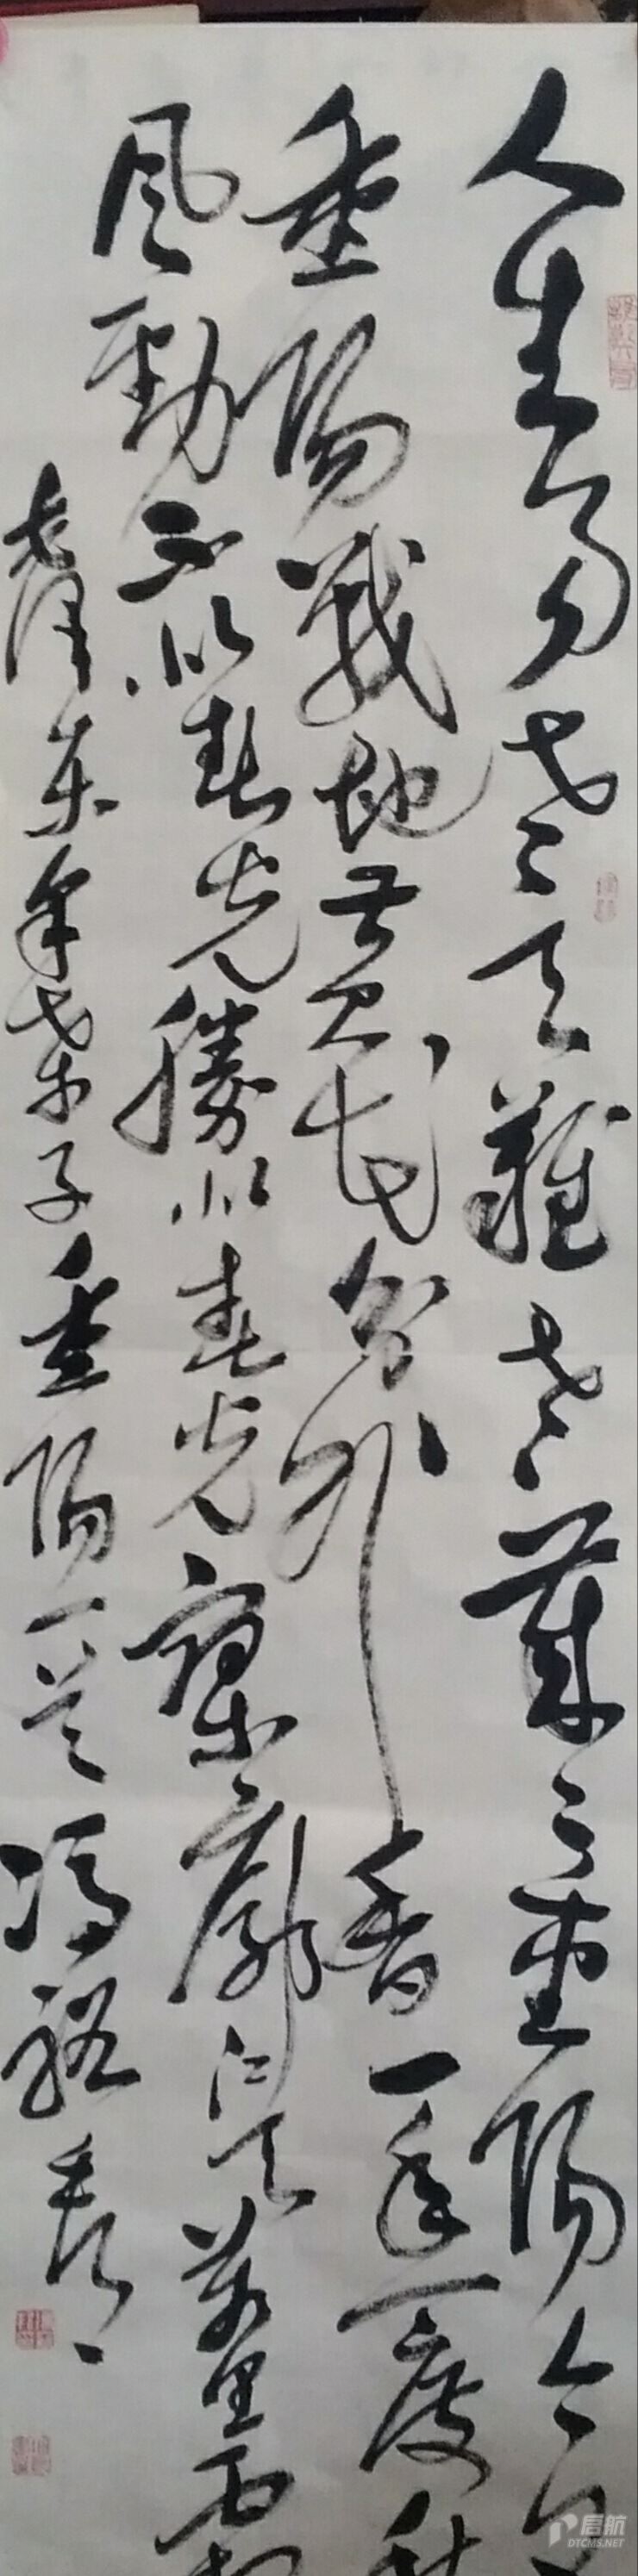 人生易老天難老歲々重陽今又
重陽戰地黃花分外香一年一度秋
風勁不似春光勝似春光寥廓江天萬里霜
毛澤東采桑子重陽一首馮
启航
DTCMS.NET